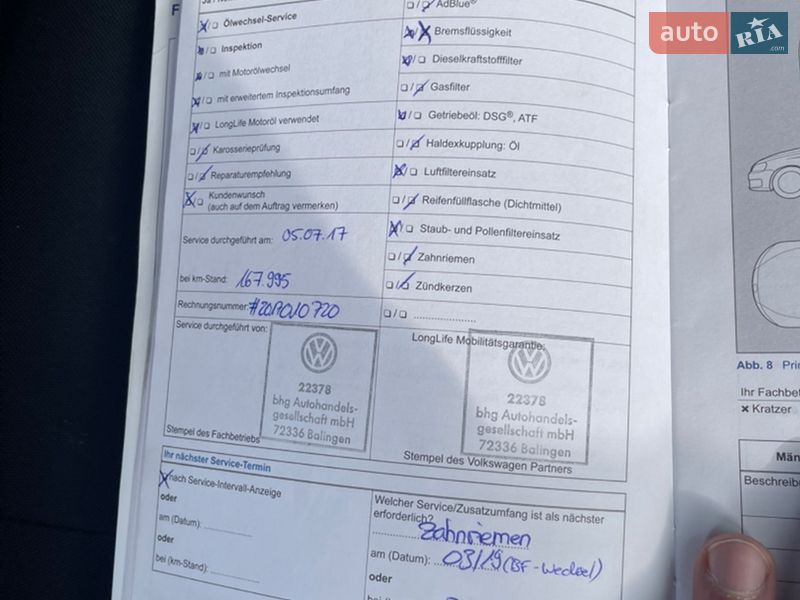 ☒/☐ Ölwechsel-Service
☒/☐ Inspektion
☒/☐ mit Motorölwechsel
☒/☐ mit erweitertem Inspektionsumfang
☒/☐ LongLife Motoröl verwendet
☐/☒ Karosserieprüfung
☐/☒ Reparaturempfehlung
☒/☐ Kundenwunsch
(auch auf dem Auftrag vermerken)
Service durchgeführt am: 05.07.17
bei km-Stand: 167.995
Rechnungsnummer:
Service durchgeführt von:
VW
22378
bhg Autohandels-
gesellschaft mbH
72336 Balingen
Stempel des Fachbetriebs
☐/☒ AdBlue®
☒ Bremsflüssigkeit
☒/☐ Dieselkraftstofffilter
☐/☒ Gasfilter
☒/☐ Getriebeöl: DSG®, ATF
☐/☒ Haldexkupplung: Öl
☒/☐ Luftfiltereinsatz
☐/☒ Reifenfüllflasche (Dichtmittel)
☒/☐ Staub- und Pollenfiltereinsatz
☐/☒ Zahnriemen
☐/☒ Zündkerzen
☐/☐ ....................
LongLife Mobilitätsgarantie:
VW
22378
bhg Autohandels-
gesellschaft mbH
72336 Balingen
Stempel des Volkswagen Partners
Ihr nächster Service-Termin
☒ nach Service-Intervall-Anzeige
oder
am (Datum):
oder
bei (km-Stand):
Welcher Service/Zusatzumfang ist als nächster
erforderlich?
Zahnriemen
am (Datum): 03/19 (BF-Wechsel)
oder
auto RIA
Abb. 8 Prin
Ihr Fachbet
× Kratzer
Män
Beschreibu